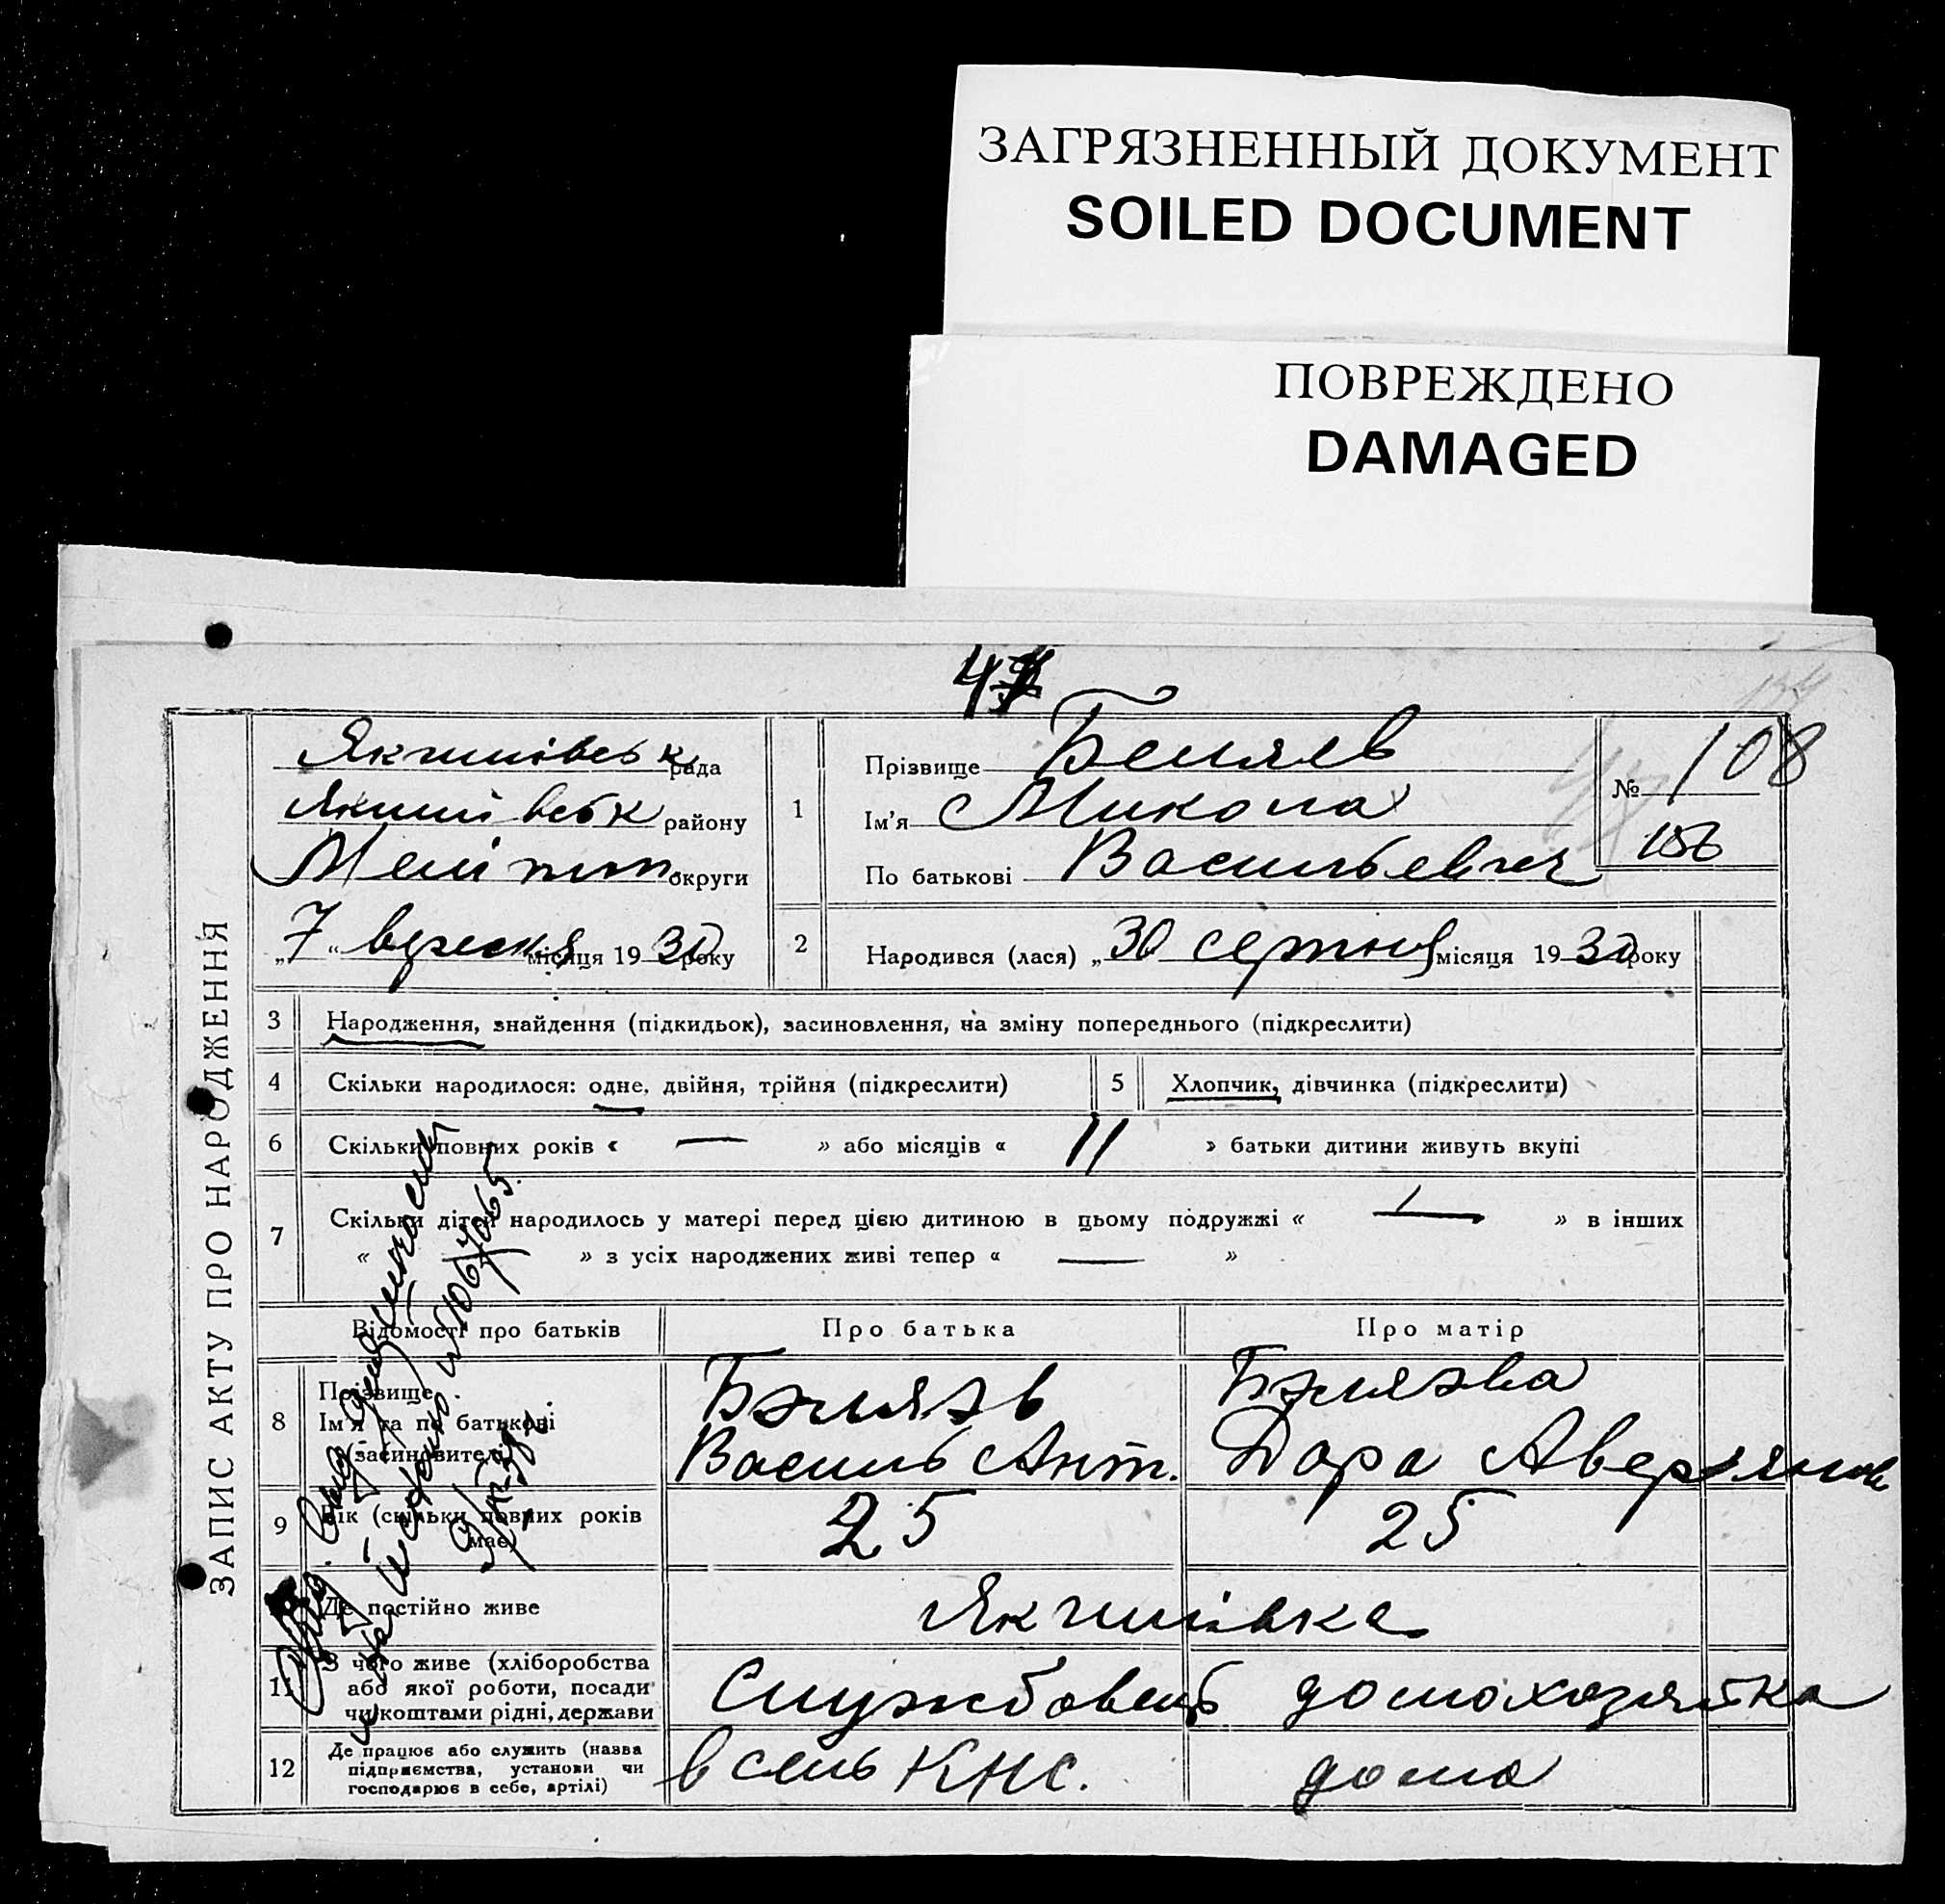 ЗАГРЯЗНЕННЫЙ ДОКУМЕНТ
SOILED DOCUMENT
ПОВРЕЖДЕНО
DAMAGED
ЗАПИС АКТУ ПРО НАРОДЖЕННЯ
Якимівськ рада
Якимівськ району
Мелітоп. округи
„7“ вересня місяця 1930 року
1
Прізвище Беляев
Ім'я Микола
По батькові Васильевич
№ 108
156
2
Народився (лася) „30 серпня місяця 1930 року
3 Народження, знайдення (підкидьок), засиновлення, на зміну попереднього (підкреслити)
4 Скільки народилося: одне, двійня, трійня (підкреслити)
5 Хлопчик, дівчинка (підкреслити)
6 Скільки повних років « — » або місяців « 11 » батьки дитини живуть вкупі
7 Скільки дітей народилось у матері перед цією дитиною в цьому подружжі « — » в інших
« » з усіх народжених живі тепер « — »
Відомості про батьків
Про батька
Про матір
8 Прізвище
Ім'я та по батькові
(засиновителі)
Бэляэв
Василь Ант.
Бэляэва
Дора Аверьянов
9 Вік (скільки повних років
має)
25
25
Де постійно живе
Якимівка
11 З чого живе (хліборобства
або якої роботи, посади
чи коштами рідні, держави
Службовець
домохазяйка
12 Де працює або служить (назва
підприємства, установи чи
господарює в себе, артілі)
в сель КНС.
дома